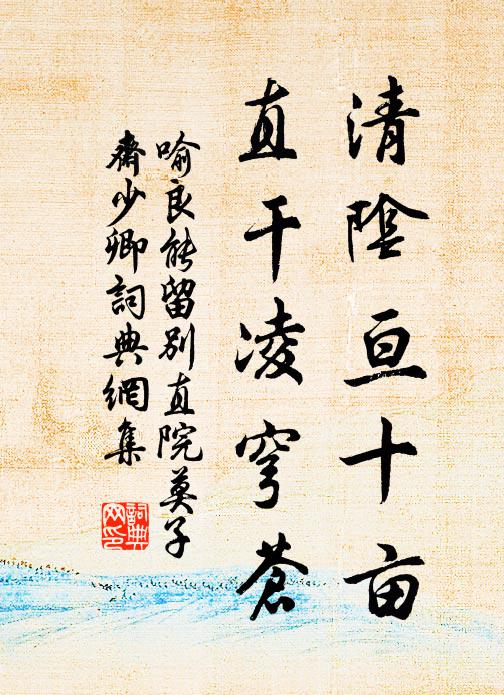 清陰亘十亩
直干凌穹蒼
喻良能留别直院莫子
齋少卿詞典網集
詞典
网印